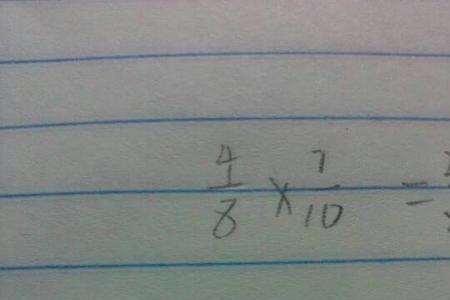 4/8 × 7/10 =